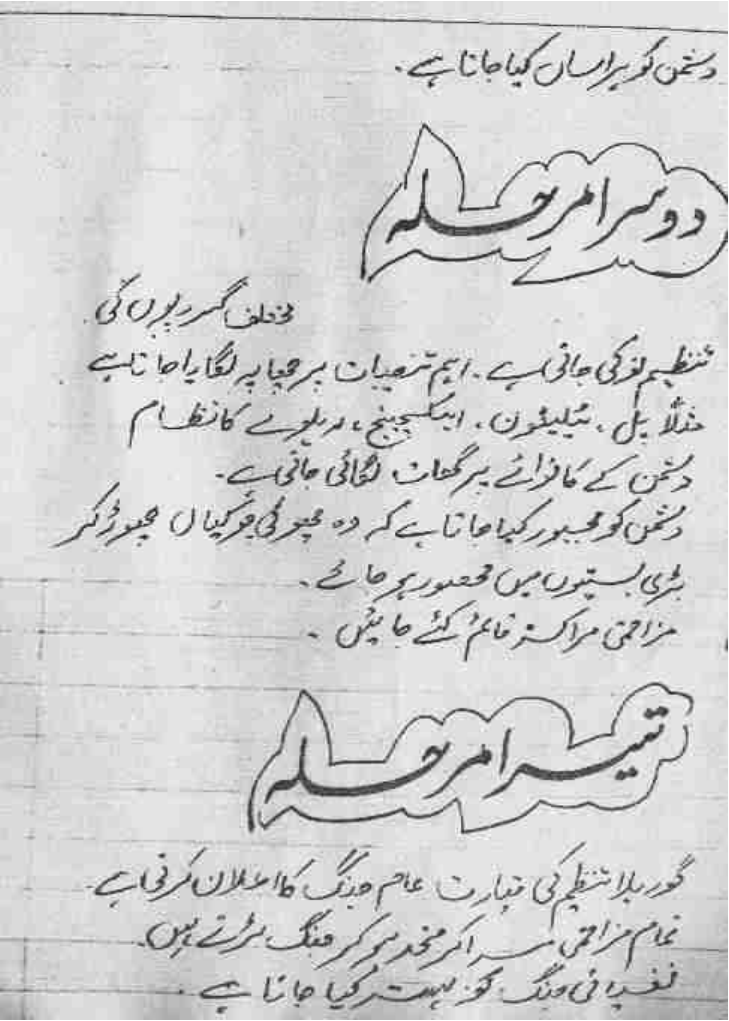 دشمن کو ہراساں کیا جاتا ہے۔
دوسرا مرحلہ
مختلف گروپوں کی
تنظیم نو کی جاتی ہے۔ اہم تنصیبات پر چھاپہ لگایا جاتا ہے
مثلاً پل، ٹیلیفون، ایکسچینج، ریلوے کا نظام
دشمن کے کانوائے پر گھات لگائی جاتی ہے۔
دشمن کو مجبور کیا جاتا ہے کہ وہ چھوٹی چوکیاں چھوڑ کر
بڑی بستیوں میں محصور ہو جائے۔
مزاحمتی مراکز قائم کئے جائیں۔
تیسرا مرحلہ
گوریلا تنظیم کی قیادت عام جنگ کا اعلان کرتی ہے۔
تمام مزاحمتی مراکز متحد ہو کر جنگ لڑتے ہیں۔
نفسیاتی جنگ کو بہتر کیا جاتا ہے۔